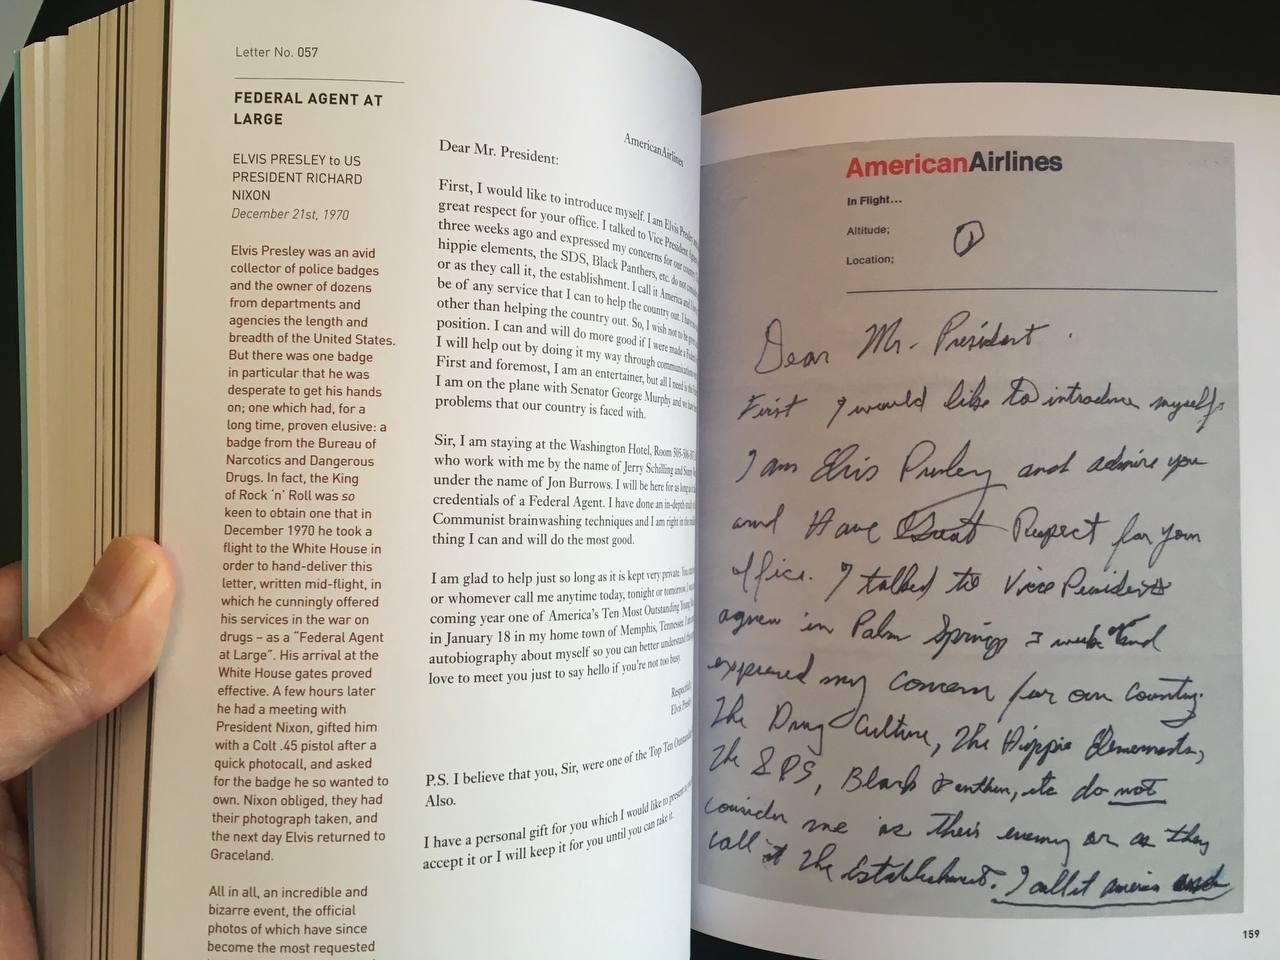 Letter No. 057
FEDERAL AGENT AT
LARGE
ELVIS PRESLEY to US
PRESIDENT RICHARD
NIXON
December 21st, 1970
Elvis Presley was an avid
collector of police badges
and the owner of dozens
from departments and
agencies the length and
breadth of the United States.
But there was one badge
in particular that he was
desperate to get his hands
on; one which had, for a
long time, proven elusive: a
badge from the Bureau of
Narcotics and Dangerous
Drugs. In fact, the King
of Rock 'n' Roll was so
keen to obtain one that in
December 1970 he took a
flight to the White House in
order to hand-deliver this
letter, written mid-flight, in
which he cunningly offered
his services in the war on
drugs – as a "Federal Agent
at Large". His arrival at the
White House gates proved
effective. A few hours later
he had a meeting with
President Nixon, gifted him
with a Colt .45 pistol after a
quick photocall, and asked
for the badge he so wanted to
own. Nixon obliged, they had
their photograph taken, and
the next day Elvis returned to
Graceland.
All in all, an incredible and
bizarre event, the official
photos of which have since
become the most requested
AmericanAirlines
Dear Mr. President:
First, I would like to introduce myself. I am Elvis Presley
great respect for your office. I talked to Vice President
three weeks ago and expressed my concerns for our
hippie elements, the SDS, Black Panthers, etc. do not
or as they call it, the establishment. I call it America and
be of any service that I can to help the country out. I have
other than helping the country out. So, I wish not to be
position. I can and will do more good if I were made a
I will help out by doing it my way through
First and foremost, I am an entertainer, but all I need is the
I am on the plane with Senator George Murphy and we
problems that our country is faced with.
Sir, I am staying at the Washington Hotel, Room 505-506-
who work with me by the name of Jerry Schilling and
under the name of Jon Burrows. I will be here for as long
credentials of a Federal Agent. I have done an in-depth
Communist brainwashing techniques and I am right in the
thing I can and will do the most good.
I am glad to help just so long as it is kept very private. You
or whomever call me anytime today, tonight or tomorrow. I
coming year one of America's Ten Most Outstanding Young
in January 18 in my home town of Memphis, Tennessee. I
autobiography about myself so you can better understand
love to meet you just to say hello if you're not too busy.
Elvis
P.S. I believe that you, Sir, were one of the Top Ten
Also.
I have a personal gift for you which I would like to present
accept it or I will keep it for you until you can take it.
AmericanAirlines
In Flight...
Altitude;
Location;
1
Dear Mr. President.
First I would like to introduce myself.
I am Elvis Presley and admire you
and Have Great Respect for your
office. I talked to Vice President
agnew in Palm Springs 3 weeks and
expressed my concern for our country.
The Drug Culture, The Hippie Elements,
The SDS, Black Panthers, etc do not
consider me as their enemy or as they
call it The Establishment. I call it america and
159